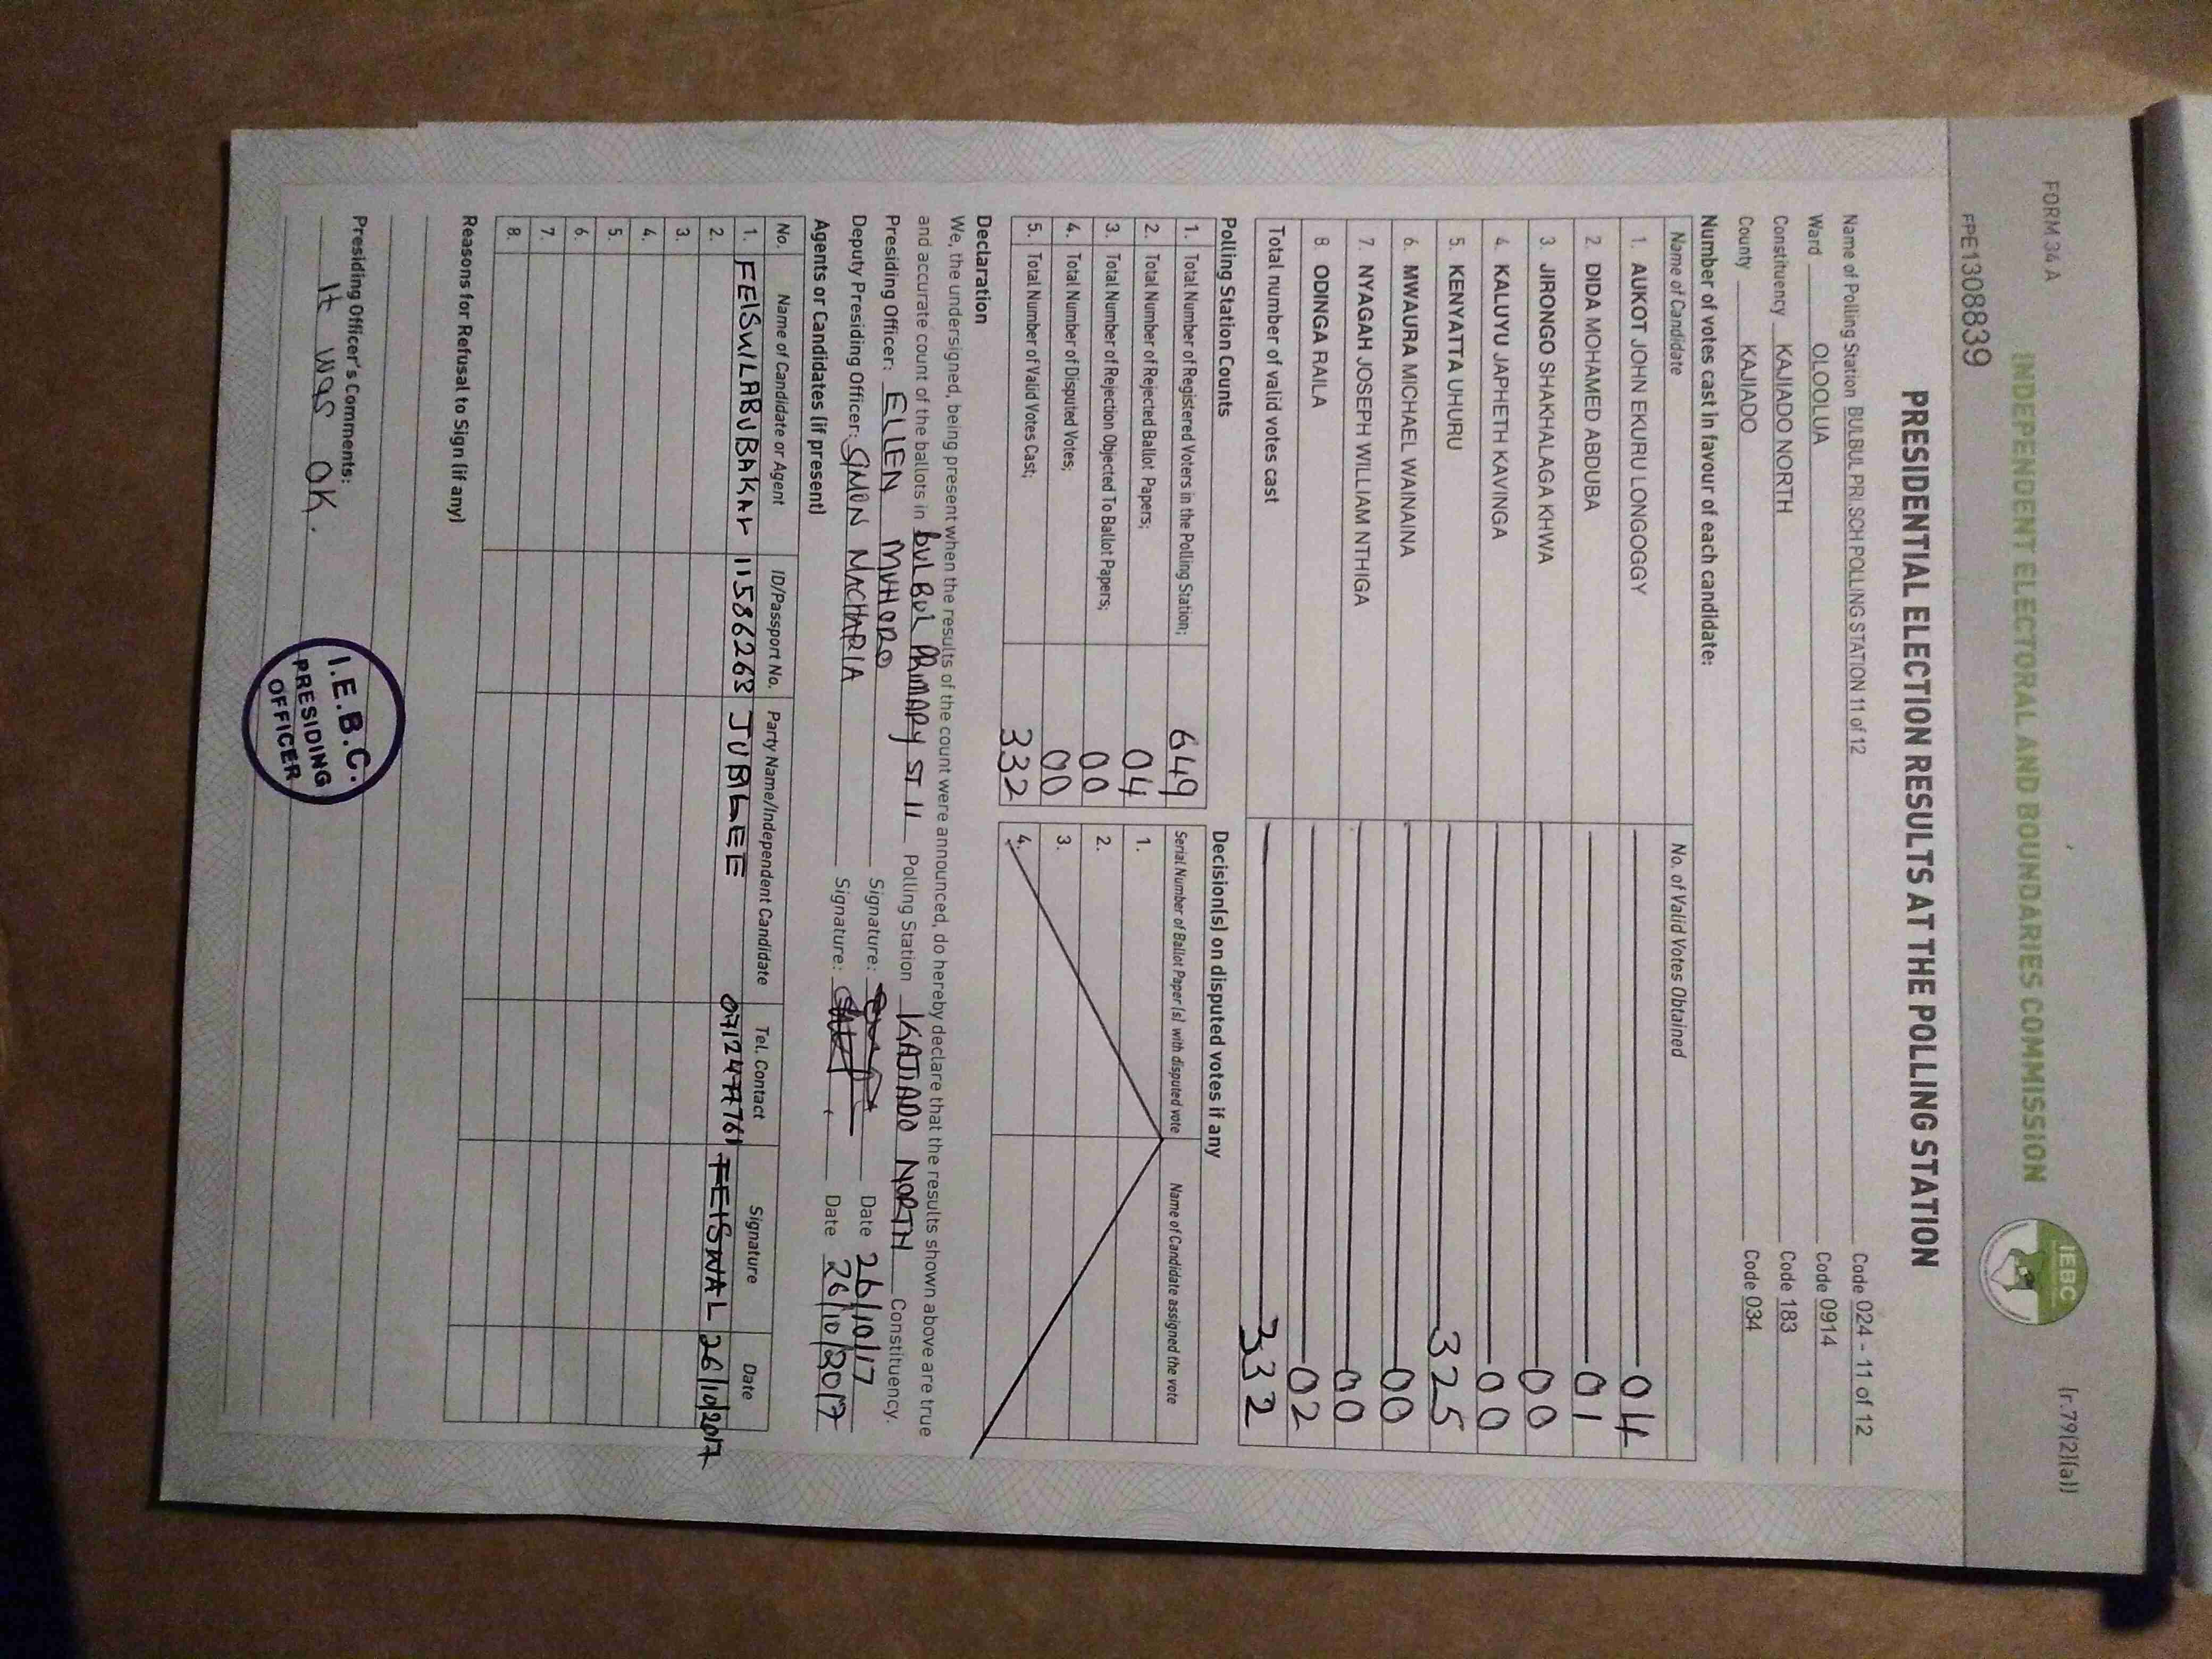 FORM 34 A
(r.79(2)(a))
INDEPENDENT ELECTORAL AND BOUNDARIES COMMISSION
IEBC
FPE1308839
PRESIDENTIAL ELECTION RESULTS AT THE POLLING STATION
Name of Polling Station BULBUL PRI. SCH POLLING STATION 11 of 12 Code 024 - 11 of 12
Ward OLOOLUA Code 0914
Constituency KAJIADO NORTH Code 183
County KAJIADO Code 034
Number of votes cast in favour of each candidate:
Name of Candidate No. of Valid Votes Obtained
1. AUKOT JOHN EKURU LONGOGGY 04
2. DIDA MOHAMED ABDUBA 01
3. JIRONGO SHAKHALAGA KHWA 00
4. KALUYU JAPHETH KAVINGA 00
5. KENYATTA UHURU 325
6. MWAURA MICHAEL WAINAINA 00
7. NYAGAH JOSEPH WILLIAM NTHIGA 00
8. ODINGA RAILA 02
Total number of valid votes cast 332
Polling Station Counts
1. Total Number of Registered Voters in the Polling Station; 649
2. Total Number of Rejected Ballot Papers; 04
3. Total Number of Rejection Objected To Ballot Papers; 00
4. Total Number of Disputed Votes; 00
5. Total Number of Valid Votes Cast; 332
Decision(s) on disputed votes if any
Serial Number of Ballot Paper (s) with disputed vote Name of Candidate assigned the vote
1.
2.
3.
4.
Declaration
We, the undersigned, being present when the results of the count were announced, do hereby declare that the results shown above are true
and accurate count of the ballots in BULBUL PRIMARY ST 11 Polling Station KAJIADO NORTH Constituency.
Presiding Officer: ELLEN MUHORO Signature: Date 26/10/17
Deputy Presiding Officer: SIMON MACHARIA Signature: Date 26/10/2017
Agents or Candidates (if present)
No. Name of Candidate or Agent ID/Passport No. Party Name/Independent Candidate Tel. Contact Signature Date
1. FEISUILABUBAKAR 11586263 JUBILEE 0712477761 FEISWAL 26/10/2017
2.
3.
4.
5.
6.
7.
8.
Reasons for Refusal to Sign (if any)
Presiding Officer's Comments:
It was OK.
I.E.B.C.
PRESIDING
OFFICER